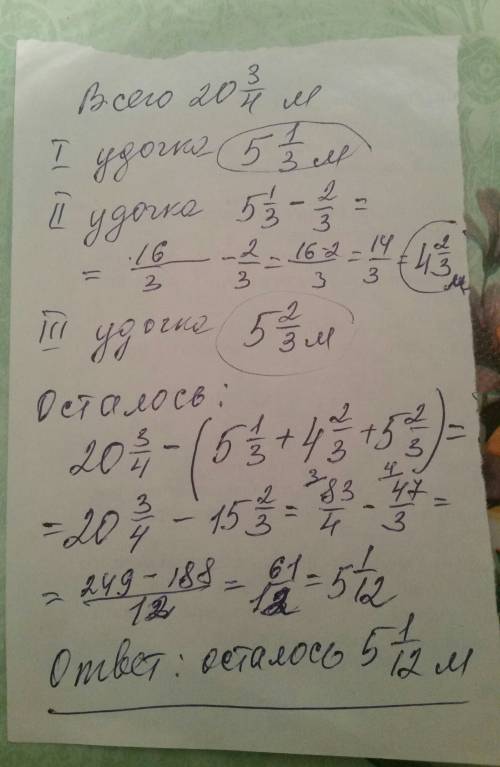 Всего 20 3/4 м
I удочка 5 1/3 м
II удочка 5 1/3 - 2/3 =
= 16/3 - 2/3 = 16-2/3 = 14/3 = 4 2/3 м
III удочка 5 2/3 м
Осталось:
20 3/4 - (5 1/3 + 4 2/3 + 5 2/3) =
= 20 3/4 - 15 2/3 = ³83/4 - ⁴47/3 =
= 249-188/12 = 61/12 = 5 1/12
Ответ: осталось 5 1/12 м